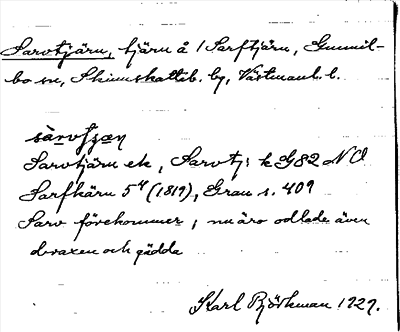 Sarvtjärn, tjärn å / Sarftjärn, Gunnil-
bo sn, Skinnskatteb. bg, Västmanl. l.
sàrvʃæ̣n
Sarvtjärn ek, Sarvtj: k G82 NO
Sarfkärn 5 (1819), Grau s. 409
Sarv förekommer, nu äro odlade även
braxen och gädda
Karl Björkman 1929.